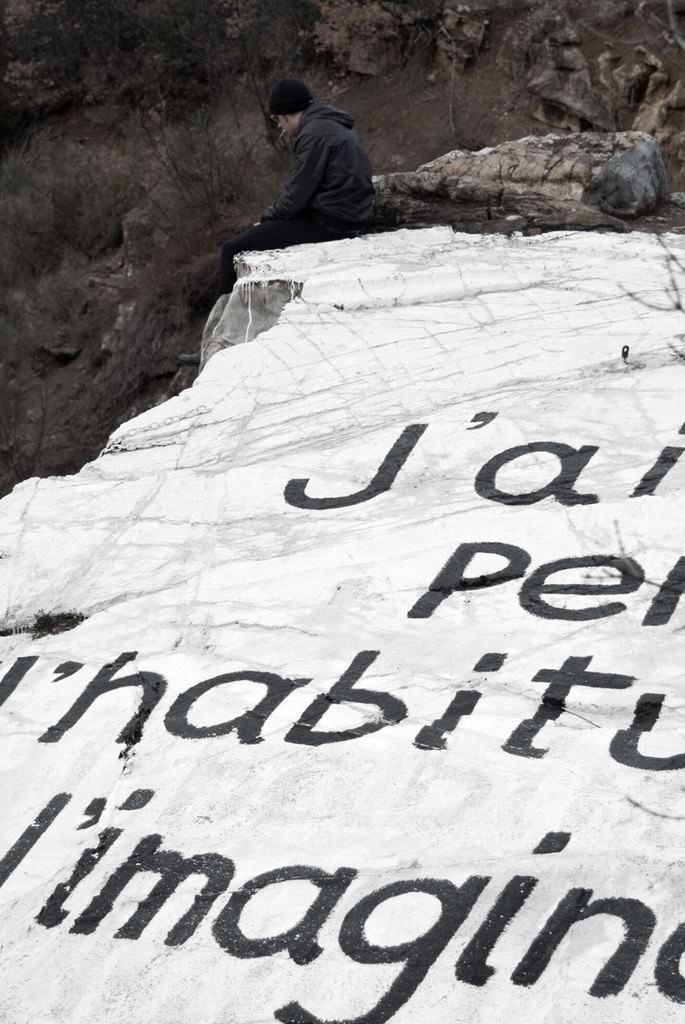 J'ai
per
l'habitu
l'imagina